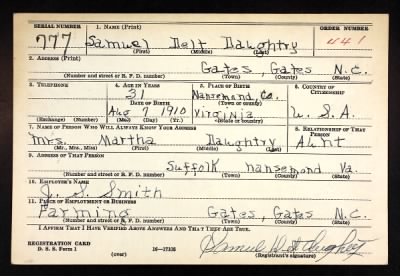 SERIAL NUMBER 1. NAME (Print) ORDER NUMBER
777 Samuel Delt Daughtry 441
(First) (Middle) (Last)
2. ADDRESS (Print)
Gates, Gates N.C.
(Number and street or R. F. D. number) (Town) (County) (State)
3. TELEPHONE 4. AGE IN YEARS 5. PLACE OF BIRTH 6. COUNTRY OF CITIZENSHIP
31 Nansemond, Co.
DATE OF BIRTH (Town or county)
Aug 7 1910 Virginia U.S.A.
(Exchange) (Number) (Mo.) (Day) (Yr.) (State or country)
7. NAME OF PERSON WHO WILL ALWAYS KNOW YOUR ADDRESS 8. RELATIONSHIP OF THAT PERSON
Mrs. Martha Daughtry Aunt
(Mr., Mrs., Miss) (First) (Middle) (Last)
9. ADDRESS OF THAT PERSON
Suffolk Nansemond Va.
(Number and street or R. F. D. number) (Town) (County) (State)
10. EMPLOYER'S NAME
J. S. Smith
11. PLACE OF EMPLOYMENT OR BUSINESS
Farming Gates, Gates N.C.
(Number and street or R. F. D. number) (Town) (County) (State)
I AFFIRM THAT I HAVE VERIFIED ABOVE ANSWERS AND THAT THEY ARE TRUE.
REGISTRATION CARD
D. S. S. Form 1 (over) 16—17105 Samuel
(Registrant's signature)